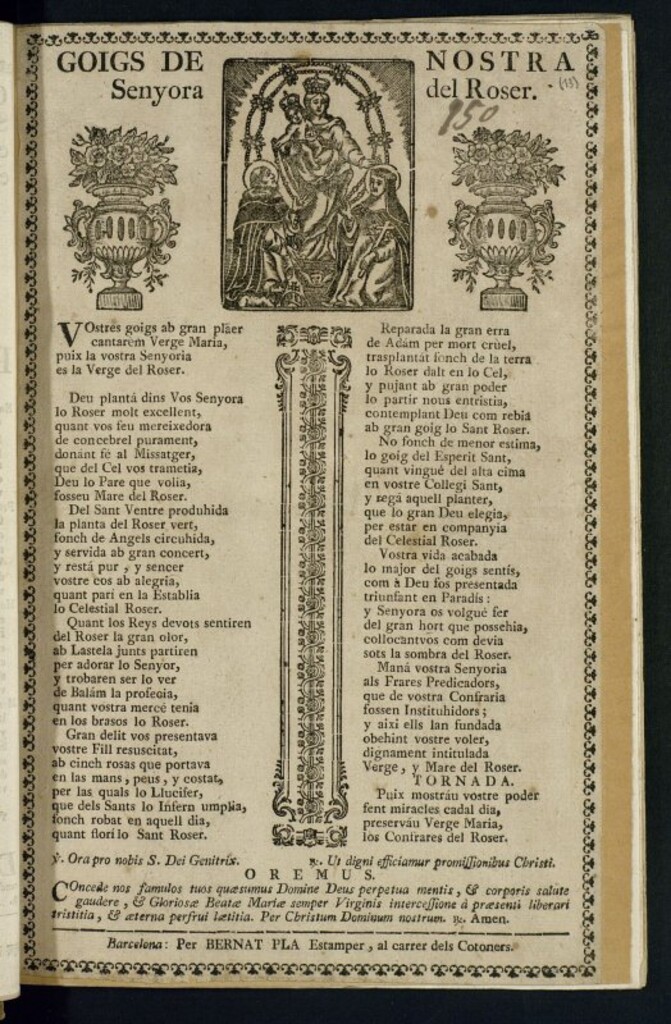 GOIGS DE NOSTRA
Senyora del Roser.
(13)
150
VOstres goigs ab gran plaer
cantarem Verge Maria,
puix la vostra Senyoria
es la Verge del Roser.
Deu plantá dins Vos Senyora
lo Roser molt excellent,
quant vos feu mereixedora
de concebrel purament,
donant fé al Missatger,
que del Cel vos trametia,
Deu lo Pare que volia,
fosseu Mare del Roser.
Del Sant Ventre produhida
la planta del Roser vert,
fonch de Angels circuhida,
y servida ab gran concert,
y restá pur, y sencer
vostre cos ab alegria,
quant parí en la Establia
lo Celestial Roser.
Quant los Reys devots sentiren
del Roser la gran olor,
ab Lastela junts partiren
per adorar lo Senyor,
y trobaren ser lo ver
de Balám la profecia,
quant vostra mercé tenia
en los brasos lo Roser.
Gran delit vos presentava
vostre Fill resuscitat,
ab cinch rosas que portava
en las mans, peus, y costat,
per las quals lo Llucifer,
que dels Sants lo Infern umplia,
fonch robat en aquell dia,
quant florí lo Sant Roser.
Reparada la gran erra
de Adám per mort crüel,
trasplantát fonch de la terra
lo Roser dalt en lo Cel,
y pujant ab gran poder
lo partir nous entristia,
contemplant Deu com rebia
ab gran goig lo Sant Roser.
No fonch de menor estima,
lo goig del Esperit Sant,
quant vingué del alta cima
en vostre Collegi Sant,
y regá aquell planter,
que lo gran Deu elegia,
per estar en companyia
del Celestial Roser.
Vostra vida acabada
lo major del goigs sentís,
com à Deu fos presentada
triunfant en Paradís:
y Senyora os volgué fer
del gran hort que possehia,
collocantvos com devia
sots la sombra del Roser.
Maná vostra Senyoria
als Frares Predicadors,
que de vostra Confraria
fossen Instituhidors;
y aixi ells lan fundada
obehint vostre voler,
dignament intitulada
Verge, y Mare del Roser.
TORNADA.
Puix mostráu vostre poder
fent miracles cadal dia,
preserváu Verge Maria,
los Confrares del Roser.
℣. Ora pro nobis S. Dei Genitrix. ℟. Ut digni efficiamur promissionibus Christi.
OREMUS.
COncede nos famulos tuos quæsumus Domine Deus perpetua mentis, & corporis salute
gaudere, & Gloriosæ Beatæ Mariæ semper Virginis intercessione á præsenti liberari
tristitia, & æterna perfrui lætitia. Per Christum Dominum nostrum. ℟. Amen.
Barcelona: Per BERNAT PLA Estamper, al carrer dels Cotoners.